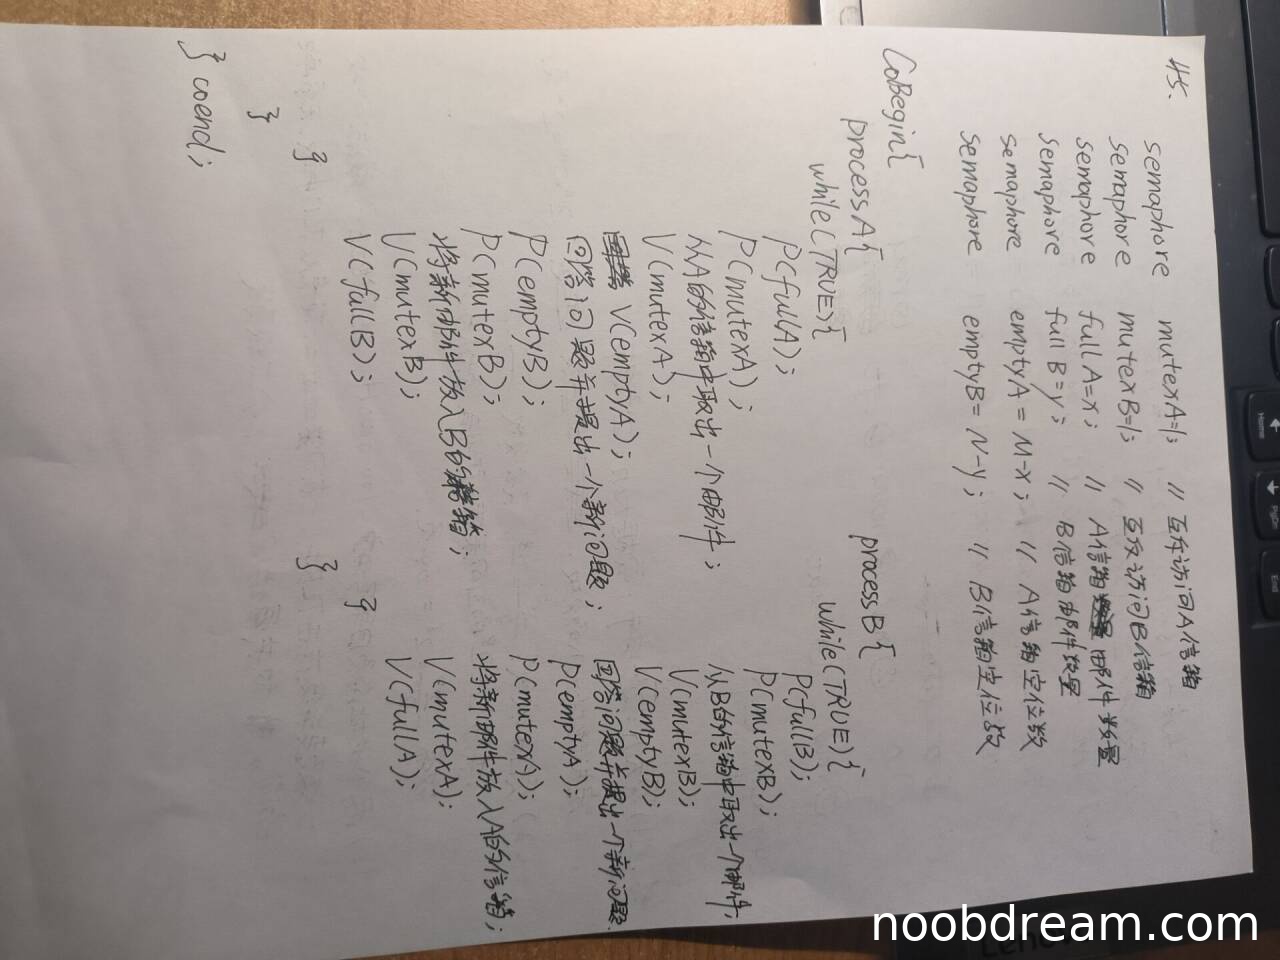 45、
semaphore mutexA=1; // 互斥访问A信箱
semaphore mutexB=1; // 互斥访问B信箱
semaphore fullA=x; // A信箱邮件数量
semaphore fullB=y; // B信箱邮件数量
semaphore emptyA=M-x; // A信箱空位数
semaphore emptyB=N-y; // B信箱空位数
CoBegin{
processA{
while(TRUE){
P(fullA);
P(mutexA);
从A的信箱中取出一个邮件;
V(mutexA);
V(emptyA);
回答问题并提出一个新问题;
P(emptyB);
P(mutexB);
将新邮件放入B的信箱;
V(mutexB);
V(fullB);
}
}
processB{
while(TRUE){
P(fullB);
P(mutexB);
从B的信箱中取出一个邮件;
V(mutexB);
V(emptyB);
回答问题并提出一个新问题
P(emptyA);
P(mutexA);
将新邮件放入A的信箱;
V(mutexA);
V(fullA);
}
}
} coend;
noobdream.com